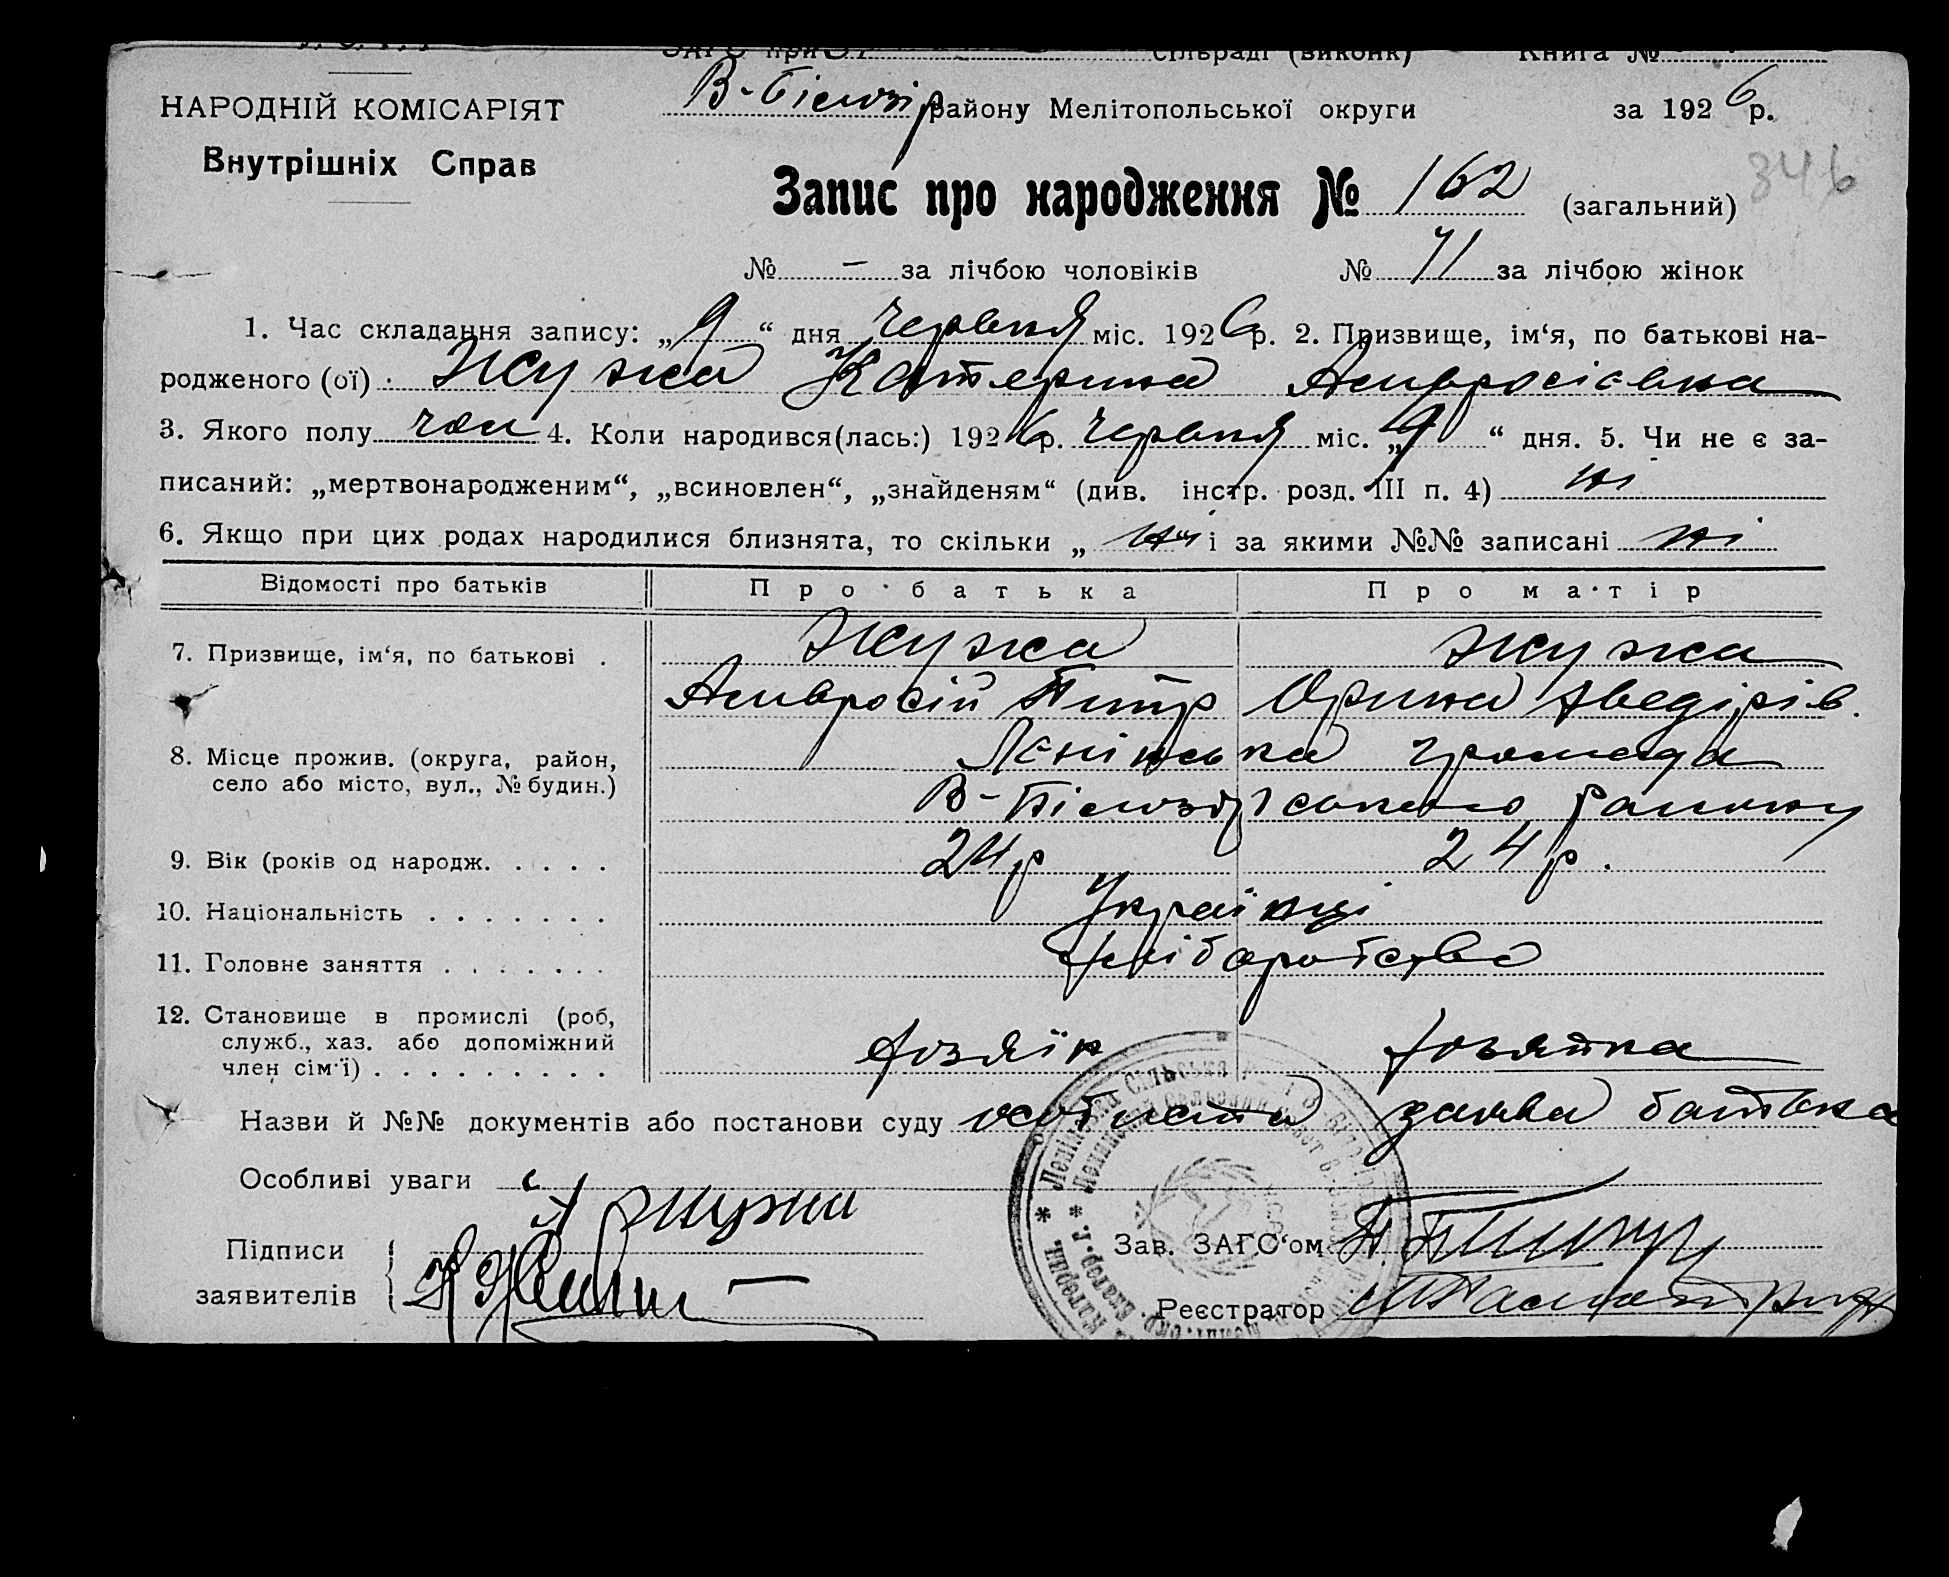 ЗАГС при сільраді (виконк) Книга №
НАРОДНІЙ КОМІСАРІЯТ
Внутрішніх Справ
В-Білозір району Мелітопольської округи за 1926 р.
Запис про народження № 162 (загальний)
346
№ - за лічбою чоловіків № 71 за лічбою жінок
1. Час складання запису: „9“ дня червня міс. 1926 р. 2. Призвище, ім‘я, по батькові на-
родженого (ої) Жужа Катерина Амвросієвна
3. Якого полу жен 4. Коли народився(лась:) 1926 р. червня міс. „9“ дня. 5. Чи не є за-
писаний: „мертвонародженим“, „всиновлен“, „знайденям“ (див. інстр. розд. III п. 4) ні
6. Якщо при цих родах народилися близнята, то скільки „ ні і за якими №№ записані ні
Відомості про батьків Про батька Про матір
7. Призвище, ім‘я, по батькові . Жужа Жужа
Амвросій Петр Орина
8. Місце прожив. (округа, район,
село або місто, вул., № будин.)
Ленінська громада
В-Білозірського району
9. Вік (років од народж. . . . . 24 р 24 р.
10. Національність . . . . . . . Українці
11. Головне заняття . . . . . . . хліборобство
12. Становище в промислі (роб,
служб., хаз. або допоміжний
член сім‘ї) . . . . . . . . . хозяїн хозяйка
Назви й №№ документів або постанови суду особиста заява батька
Особливі уваги
Підписи
заявителів
А Жужа
Зав. ЗАГС‘ом
Реєстратор